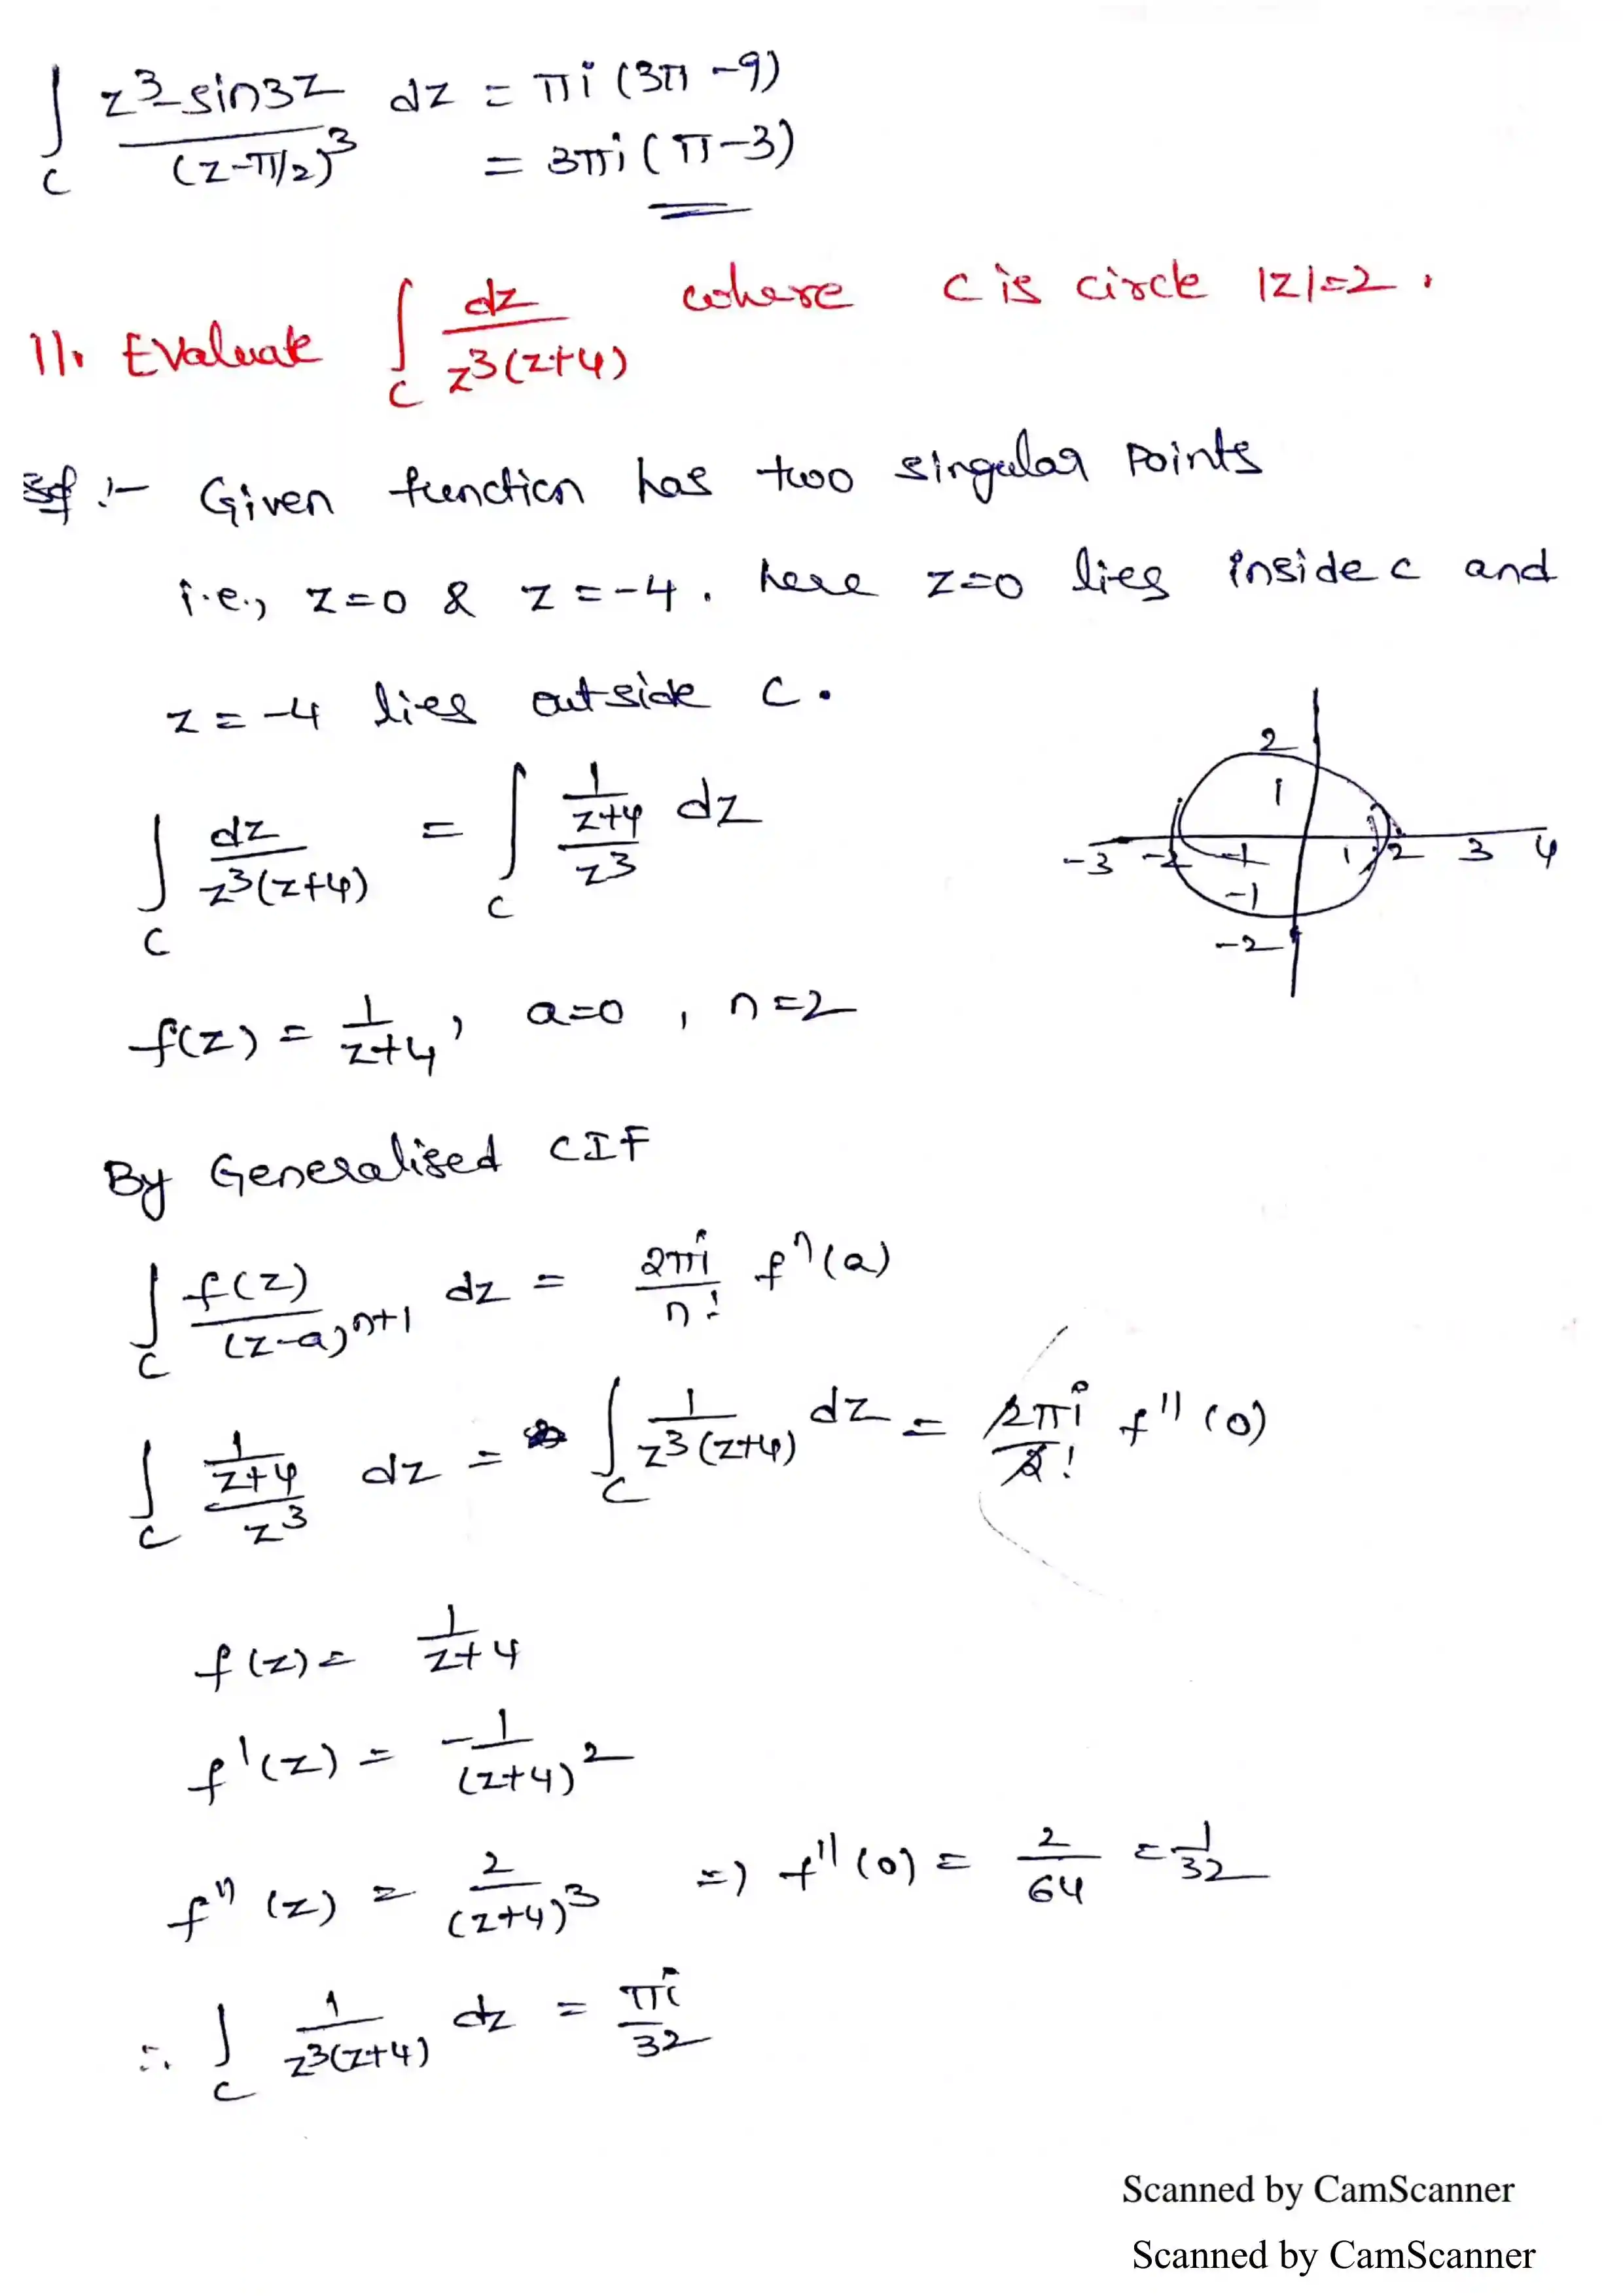 ∫_C (z³-sin3z)/(z-π/2)³ dz = πi (3π -9)
= 3πi (π-3)
11. Evaluate ∫_C dz/(z³(z+4)) where c is circle |z|=2.
Sol :- Given function has two singular points
i.e., z=0 & z=-4. here z=0 lies inside c and
z=-4 lies outside C.
∫_C dz/(z³(z+4)) = ∫_C (1/(z+4))/z³ dz
2
1
-3 -2 -1 1 2 3 4
-1
-2
f(z) = 1/(z+4), a=0, n=2
By Generalised CIF
∫_C f(z)/(z-a)ⁿ⁺¹ dz = 2πi/n! fⁿ(a)
∫_C (1/(z+4))/z³ dz = ∫_C 1/(z³(z+4)) dz = 2πi/2! f''(0)
f(z) = 1/(z+4)
f'(z) = -1/(z+4)²
f''(z) = 2/(z+4)³ => f''(0) = 2/64 = 1/32
∴ ∫_C 1/(z³(z+4)) dz = πi/32
Scanned by CamScanner
Scanned by CamScanner